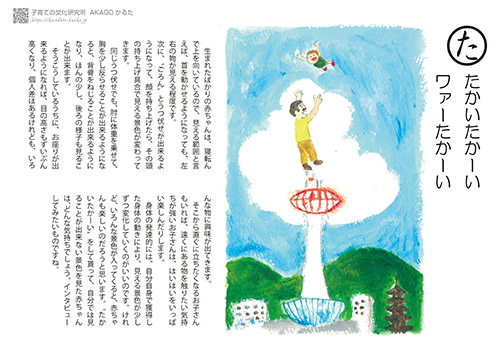 子育ての文化研究所　AKAGO かるた
た
たかいたかーい
ワァーたかーい
生まれたばかりの赤ちゃんは、寝転ん
で上を向いているので、見える範囲と言
えば、首を動かせるようになっても、左
右の物が見える程度です。
次に、「ごろん」とうつ伏せが出来るよ
うになって、顔を持ち上げたら、その頭
の持ち上げ具合で見える景色が変わって
きます。
同じうつ伏せでも、肘に体重を乗せて、
胸を少し反らせることが出来るようにな
ると、背骨をねじることが出来るように
なり、ほんの少し、後ろの様子も見るこ
とが出来ます。
そうこうしているうちに、お座りが出
来るようになれば、目の高さもずいぶん
高くなり、個人差はあるけれども、いろ
んな物に興味が出てきます。
そこから直ぐに立ちたくなるお子さん
もいれば、遠くにある物を触りたい気持
ちが強いお子さんは、はいはいをいっぱ
い楽しんだりします。
身体の発達的には、自分自身で獲得し
た身体の動きにより、見える景色が少し
ずつ変化していくのがいいのです。けれ
ど、いろんな景色が入ってくると、赤ちゃ
んも楽しいのだろうと思います。“たか
いたかーい”をして貰って、自分では見
ることが出来ない景色を見た赤ちゃん
は、どんな気持ちでしょう。インタビュー
してみたいものですね。